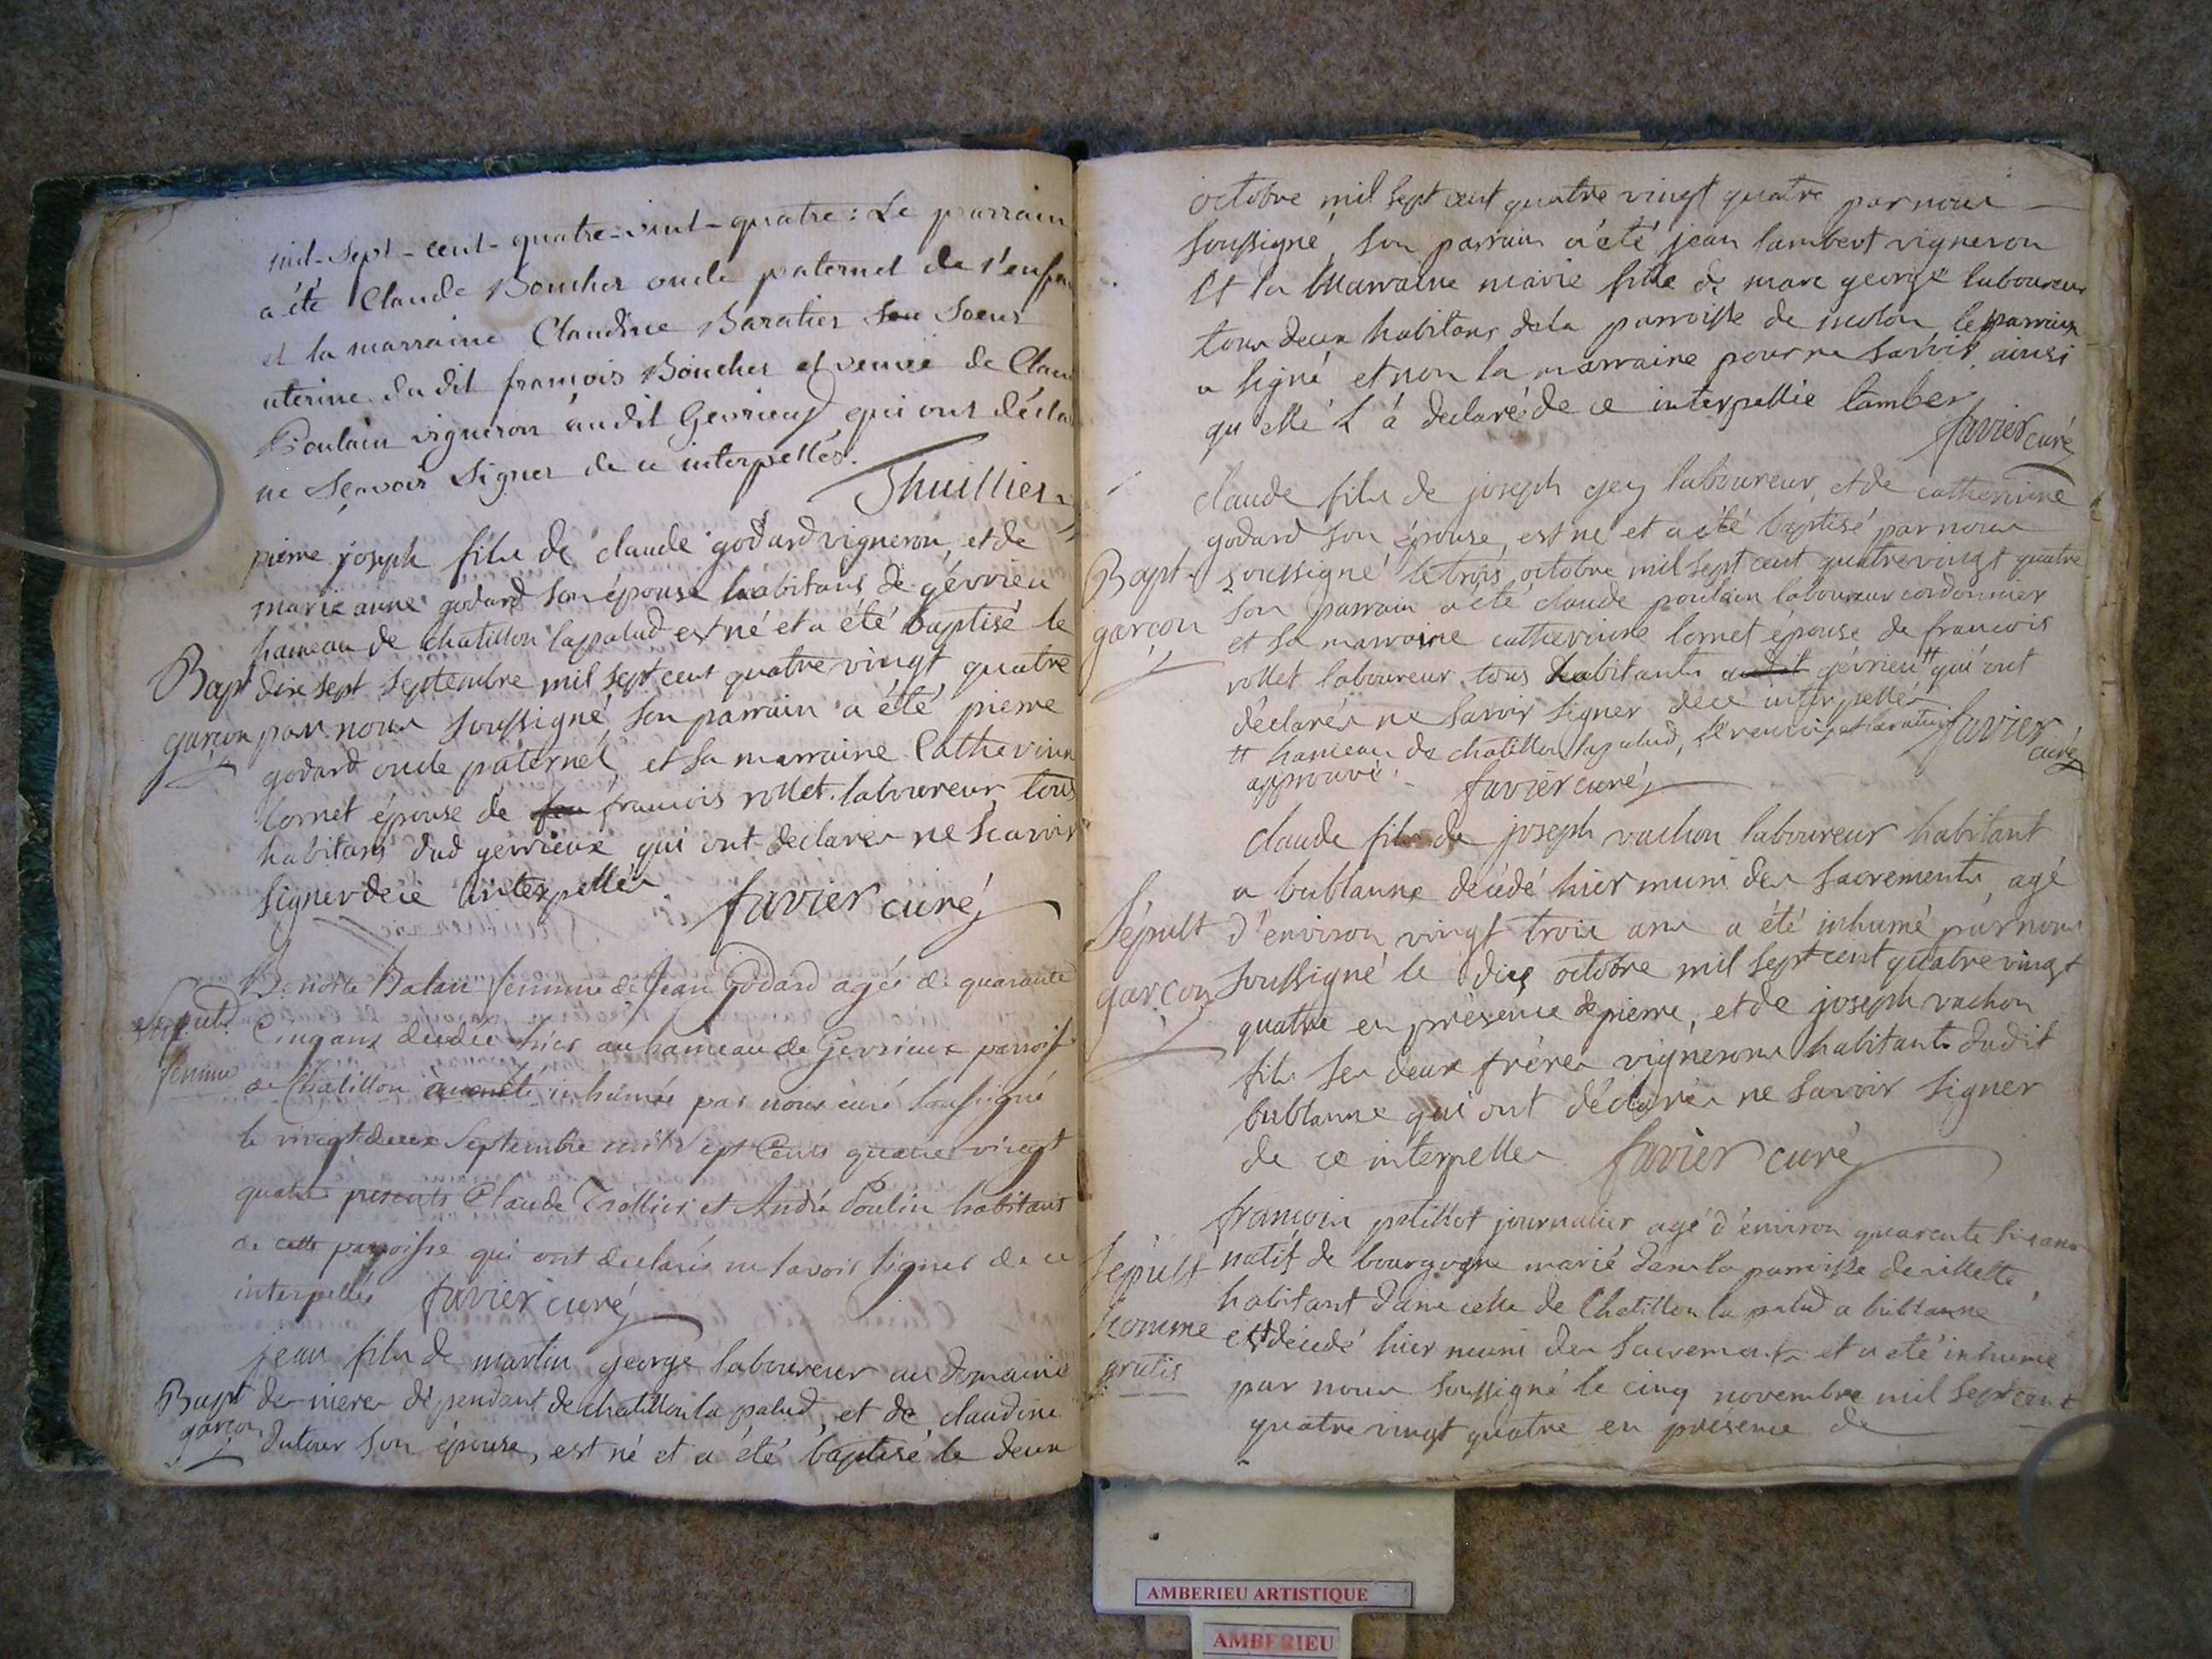 mil-sept-cent-quatre-vint-quatre: Le parrain
a été Claude Boucher oncle paternel de l'enfan
et la marraine Claudine Baratier sa soeur
uterine du dit françois Boucher et veuve de Clau
Poulain vigneron audit Gevrieux qui ont décla
ne sçavoir signer de ce interpellés.
Thuillier
pierre joseph fils de claude godard vigneron, et de
marie anne godard son épouse habitans de gévrieu
hameau de chatillon lapalud est né et a été baptisé le
Bapt dix sept septembre mil sept cent quatre vingt quatre
garçon par nous soussigné, son parrain a été pierre
godard oncle paternel, et sa marraine Catherinne
Cornet épouse de feu francois rollet laboureur tous
habitans dud gevrieux qui ont declarés ne scavoir
signer de ce interpellés favier curé
Benoite Balan femme de Jean Godard agée de quarante
Sepult. Cinq ans decedée hier au hameau de Gevrieux parroisse
femme de Chatillon a été inhumée par nous curé soussigné
le vingt deux Septembre mil Sept Cents quatre vingt
quatre presents Claude Trollier et André Poulin habitans
de cette parroisse qui ont declarés ne savoir signer de ce
interpellés favier curé
jean fils de martin george laboureur au domaine
Bapt des mieres dépendant de chatillon la palud, et de claudine
garçon dutour son épouse, est né et a été baptisé le deux
octobre mil sept cent quatre vingt quatre par nous
soussigné, son parrain a été jean lambert vigneron
et la marraine marie fille de marc george laboureur
tous deux habitans dela parroisse de molon, le parrain
a signé et non la marraine pour ne savoir ainsi
qu elle l'a declaré de ce interpellée lamber
favier curé
claude fils de joseph gey laboureur, et de catherinne
godard son épouse, est né et a été baptisé par nous
Bapt. soussigné le trois octobre mil sept cent quatrevingt quatre
son parrain a été claude poulain laboureur cordonnier
garçon et sa marraine catherinne Cornet épouse de francois
rollet laboureur tous habitants audit gévrieu # qui ont
déclarés ne savoir signer dece interpellés
# hameau de chatillon lapalud, le renvoi et la rature favier curé
approuvé. favier curé
claude fils de joseph vachon laboureur habitant
a bublanne décédé hier muni des sacrements, agé
Sépult d'environ vingt trois ans a été inhumé par nous
garçon soussigné le dix octobre mil sept cent quatre vingt
quatre en présence de pierre, et de joseph vachon
fils ses deux frères vignerons habitants dudit
bublanne qui ont déclarés ne savoir signer
de ce interpellés favier curé
françois petillot journalier agé d'environ quarente six ans
Sépult natif de bourgogne marié dans la parroisse de villette
habitant dans celle de Chatillon la palud a bublanne
homme est décédé hier muni des sacrements et a été inhumé
gratis par nous soussigné le cinq novembre mil sept cent
quatre vingt quatre en présence de
AMBERIEU ARTISTIQUE
AMBERIEU